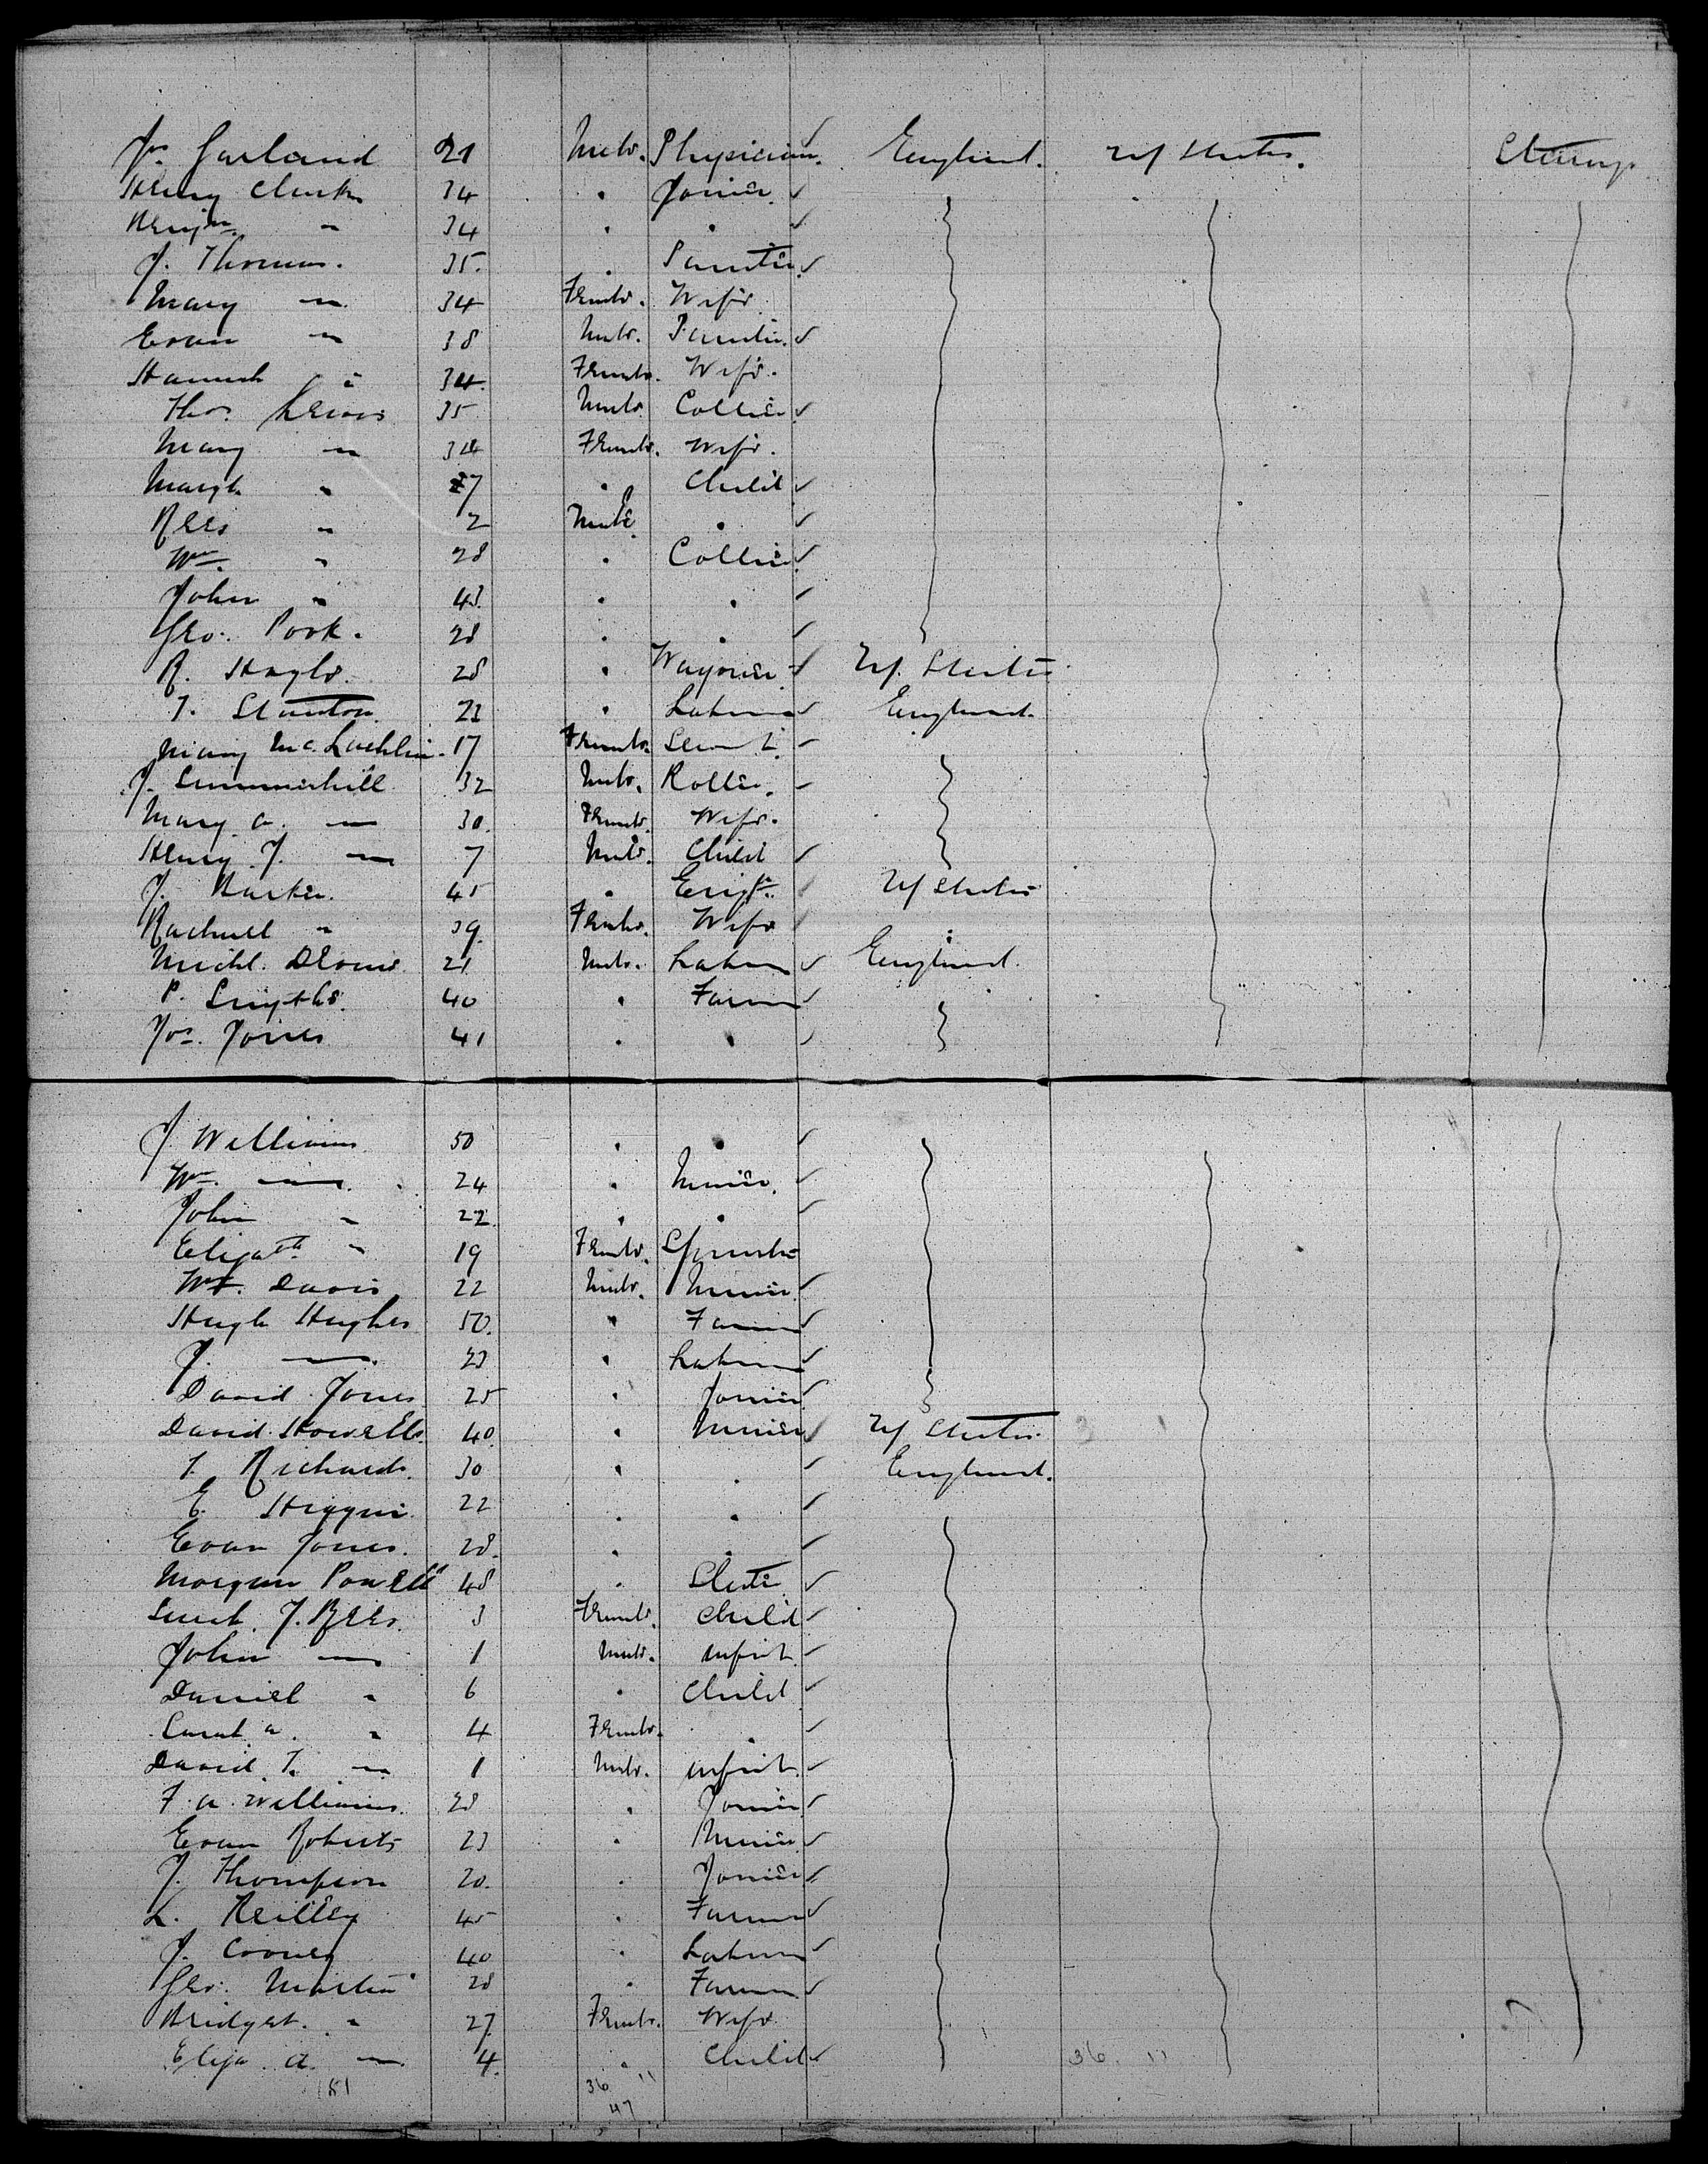 Jas. Garland 21 Male. Physician. England. U/ States. Steerage
Henry Clarke 34 " Joiner.
Benjn. " 34 " "
J. Thomas. 35. " Painter.
Mary " 34 Female. Wife
Evan " 38 Male. Painter.
Hannah " 34. Female. Wife.
Thos. Lewis 35 Male Collier
Mary " 34 Female. Wife.
Margt. " 7 " Child
Rees " 2 Male "
Wm. " 28 " Collier.
John " 43. " "
Geo. Pook. 28 " "
R. Hoyle. 28 " Waggoner U/. States
T. Stanton 21 " Labourer England.
Mary McLachlin. 17 Female. Servant.
J. Summerhill 32 Male. Roller.
Mary A. " 30. Female. Wife.
Henry J. " 7 Male. Child
J. Barker. 45 " Engr. U/ States
Rachael " 39. Female. Wife "
Michl. Downs. 21 Male. Labourer England.
P. Smythe. 40 " Farmer
Jos. Jones 41 " "
J. Williams 50 " "
Wm. " 24 " Miner.
John " 22. " "
Elizath. " 19 Female. Spinster
Wm. Davis 22 Male. Miner.
Hugh Hughes 50. " Farmer
J. " 23 " Labourer
David Jones 25 " Joiner
David Howells. 40. " Miner U/ States.
T. Richards. 30 " " England.
E. Higgins. 22 " "
Evan Jones. 28. " "
Morgan Powell 48 " Slater
Sarah J. Rees. 3 Female. Child
John " 1 Male. Infant.
Daniel " 6 " Child
Sarah A. " 4 Female. "
David T. " 1 Male. Infant.
F. A. Williams. 28 " Joiner
Evan Roberts 23 " Miner
J. Thompson 20. " Joiner
L. Reilley 45 " Farmer
J. Cooney 40 " Labourer
Geo. Martin 28 " Farmer
Bridget. " 27. Female. Wife
Eliza A. " 4. " Child 36. 11
151 36 11
47